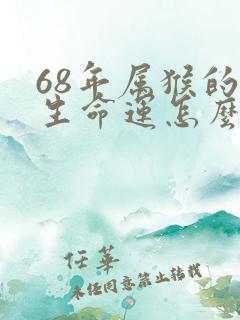 68年属猴的
生命运怎麼
任華
未经同意禁止转载